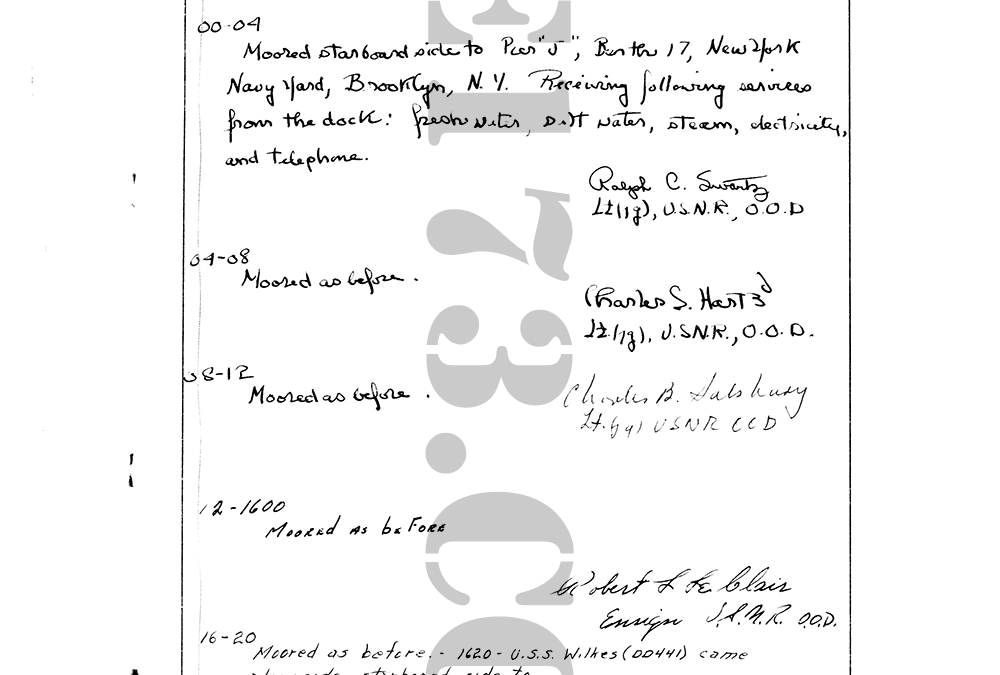 00-04
Moored starboard side to Pier "J", Berth 17, New York
Navy Yard, Brooklyn, N.Y. Receiving following services
from the dock: fresh water, salt water, steam, electricity,
and telephone.
Ralph C. Swartz
Lt(jg), U.S.N.R., O.O.D
04-08
Moored as before.
Charles S. Hart 3d
Lt.(jg), U.S.N.R., O.O.D.
08-12
Moored as before.
Charles B. Salsbury
Lt.(jg) USNR OOD
12-1600
Moored as before
Robert L Le Clair
Ensign U.S.N.R. O.O.D.
16-20
Moored as before. - 1620 - U.S.S. Wilkes (DD441) came
alongside starboard side to
73.Co